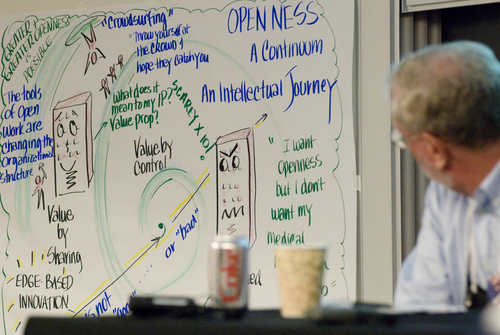 GREATER OPENNESS
GREATER OPENNESS
POSSIBLE
"Crowdsurfing"
"Throw yourself at
the CROWD &
hope they catch you
OPENNESS
A Continuum
An Intellectual Journey
The tools
of Open
Work are
changing the
Organizational
Structure
What does it
mean to my IP?
Value Prop?
SCAREY X 10!
Value by
Control
"I want
openness
but I don't
want my
medical
Value
by
Sharing
EDGE-BASED
INNOVATION
is not
or "bad"
Coke